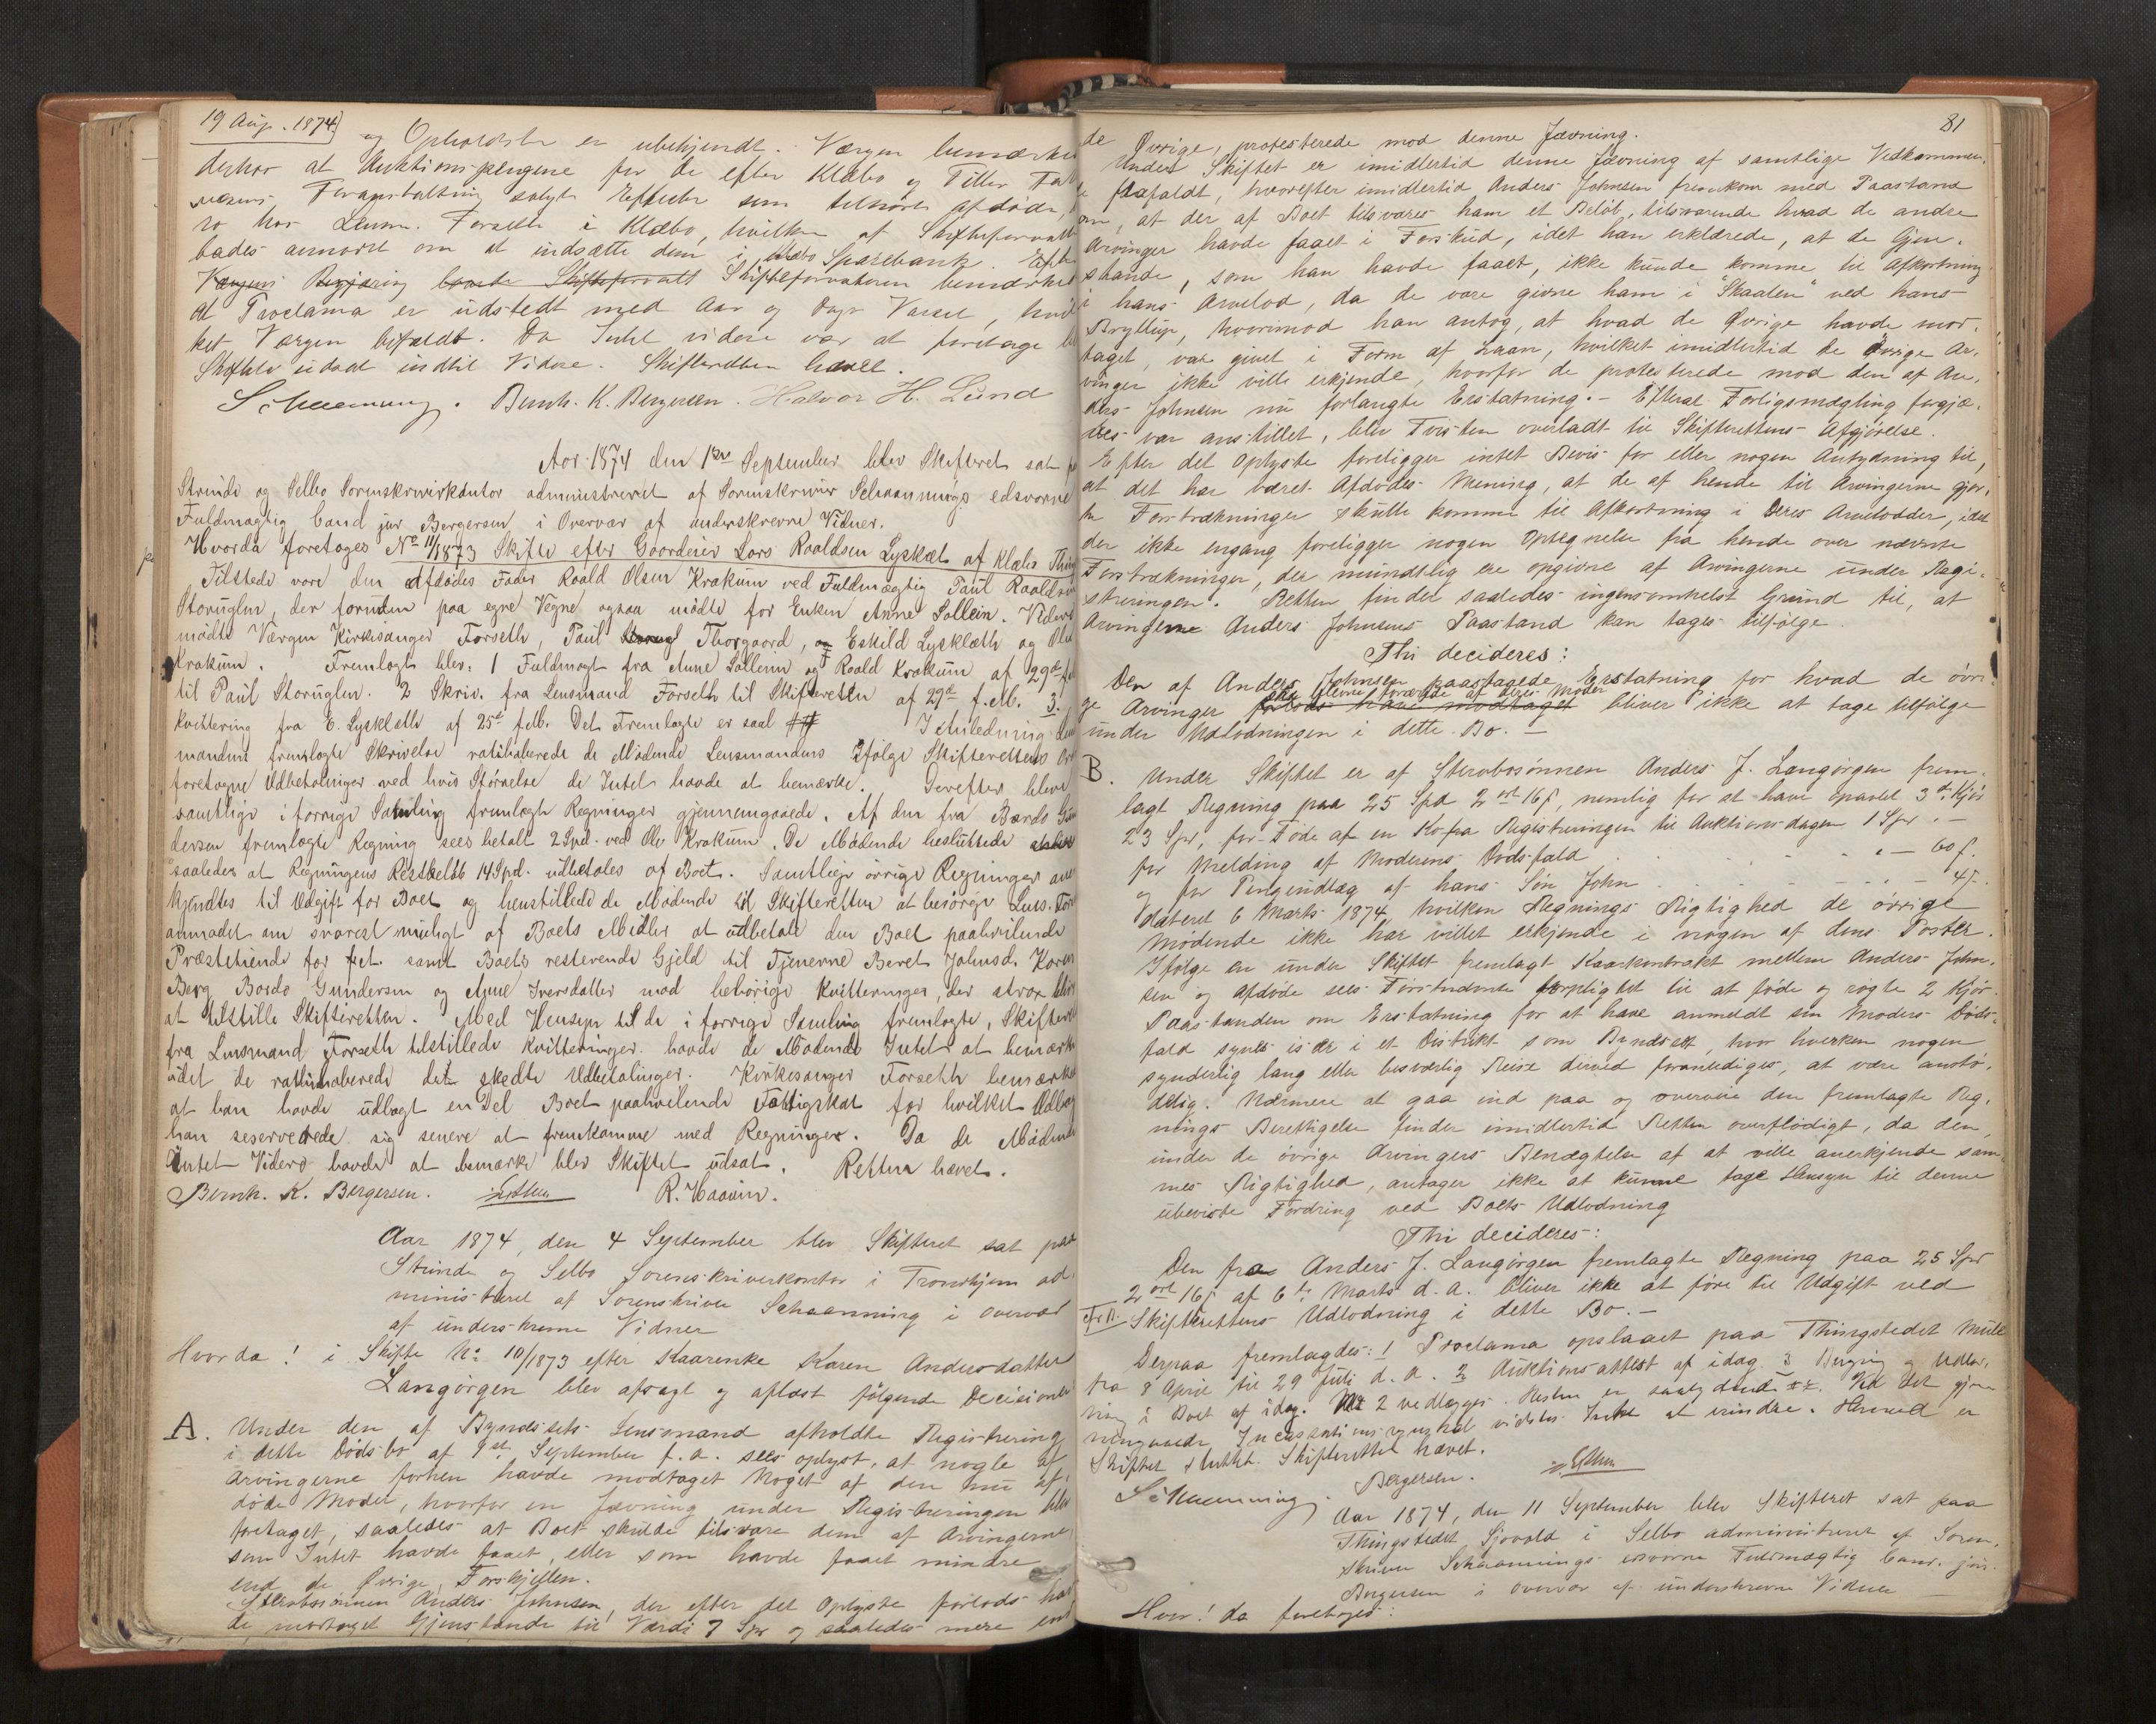 19 Aug. 1874
og Opholdssted er ubekjendt. Værgen bemærkede
derhos at Auktionspengene for de efter Klæbo og Tiller Fat
væsens Foranstaltning solgte Effecter som tilhørte afdøde,
ro hos Lensm. Forseth i Klæbo, hvilken af Skifteforvalt
bades anmodet om at indsætte dem i Klæbo Sparebank. Efter
Værgens Begjæring Skifteforvalt Skifteforvalteren bemærkede
at Proclama er udstedt med Aar og Dags Varsel, hvil
ket Værgen bifaldt. Da Intet videre var at foretage blev
Skiftet udsat indtil Videre. Skifteretten hævet.
Schaanning. Bernh. K. Bergersen. Halvor H. Lund
Aar 1874 den 1ste September blev Skifteret sat paa
Strinde og Selbo Sorenskriverkontor administreret af Sorenskriver Schaannings edsvorne
Fuldmægtig Cand jur Bergersen i Overvær af underskrevne Vidner.
Hvorda foretoges No 11/1873 Skifte efter Gaardeier Lars Roaldsen Lysklæt af Klæbo Thing
Tilstede vare den Afdødes Fader Roald Olsen Krakum ved Fuldmægtig Paul Roaldsen
Storuglen, der foruden paa egne Vegne ogsaa mødte for Enken Anne Sollein. Videre
mødte Værgen Kirkesanger Forseth, Paul Thorgaard, og Eskild Lysklæth og Ole
Krakum. Fremlagt blev: 1 Fuldmagt fra Anne Sollein og Roald Krakum af 29de f.
til Paul Storuglen. 2 Skriv. fra Lensmand Forseth til Skifteretten af 29de f.M. 3.
Kvittering fra E. Lysklæth af 25de f.M. Det Fremlagte er saal I Anledning Lens
mandens fremlagte Skrivelse ratihaberede de Mødende Lensmandens ifølge Skifterettens Ordre
foretagne Udbetalinger ved hvis Størrelse de Intet havde at bemærke. Derefter bleve
samtlige i forrige Samling fremlagte Regninger gjennemgaaede. Af den fra Bardo Gun
dersen fremlagte Regning sees betalt 2 Spd. ved Ole Krakum. De Mødende besluttede
saaledes at Regningens Restbeløb 14 Spd. udbetales af Boet. Samtlige øvrige Regninger aner
kjendtes til Udgift for Boet og henstillede de Mødende til Skifteretten at besørge Lens. Fors
anmodet om snarest muligt af Boets Midler at udbetale den Boet paahvilende
Præstetiende for f.A. samt Boets resterende Gjeld til Tjenerne Beret Johnsd. Karen
Berg Bardo Gundersen og Anne Iversdatter mod behørige Kvitteringer, der strax bliver
at tilstille Skifteretten. Med Hensyn til de i forrige Samling fremlagte, Skifteret
fra Lensmand Forseth tilstillede Kvitteringer havde de Mødende Intet at bemærke
idet de ratihaberede de skedte Udbetalinger. Kirkesanger Forseth bemærkede
at han havde udlagt en Del Boet paahvilende Fattigskat for hvilket Udlæg
han reserverede sig senere at fremkomme med Regninger. Da de Mødende
Intet Videre havde at bemærke blev Skiftet udsat. Retten hævet.
Bernh. K. Bergersen. R. Haavin.
Aar 1874, den 4 September blev Skifteret sat paa
Strinde og Selbo Sorenskriverkontor i Tronhjem ad
ministreret af Sorenskriver Schaanning i overvær
af underskrevne Vidner
Hvor da! i Skifte No 10/1873 efter Kaarenke Karen Andersdatter
Langørgen blev afsagt og aflæst følgende Decisioner
A. Under den af Bynæssets Lensmand afholdte Registrering
i dette Dødsbo af 1st September f.a. sees oplyst, at nogle af
Arvingerne forhen havde modtaget Noget af den nu af,
døde Moder, hvorfor en Jævning under Registreringen blev
foretaget, saaledes at Boet skulde tilsvare dem af Arvingerne
som Intet havde faaet, eller som havde faaet mindre
end de Øvrige, Forskjellen.
Sterbosønnen Anders Johnsen, der efter det Oplyste forlods hav
de modtaget Gjenstande til Værdi 7 Spd og saaledes mere end
81
de Øvrige, protesterede mod denne Jævning.
Under Skiftet er imidlertid denne Jævning af samtlige Vedkommen,
de frafaldt, hvorefter imidlertid Anders Johnsen fremkom med Paastand
om, at der af Boet tilsvares ham et Beløb, tilsvarende hvad de andre
Arvinger havde faaet i Forskud, idet han erklærede, at de Gjen,
stande, som han havde faaet, ikke kunde komme til Afkortning
i hans Arvelod, da de vare givne ham i "Skaalen" ved hans
Bryllup, hvorimod han antog, at hvad de Øvrige havde mod,
taget, var givet i Form af Laan, hvilket imidlertid de Øvrige Ar,
vinger ikke ville erkjende, hvorfor de protesterede mod den af An,
ders Johnsen nu forlangte Erstatning. - Efterat Forligsmægling forgjæ,
ves var anstillet, blev Tvisten overladt til Skifterettens Afgjørelse.
Efter det Oplyste foreligger intet Bevis for eller nogen Antydning til,
at det har været Afdødes Mening, at de af hende til Arvingerne gjor,
te Forstrækninger skulle komme til Afkortning i deres Arvelodder, idet
der ikke engang foreligger nogen Optegnelse fra hende over nævnte
Forstrækninger, der mundtlig ere opgivne af Arvingerne under Regi,
streringen. Retten finder saaledes ingensomhelst Grund til, at
Arvingerne Anders Johnsens Paastand kan tages tilfølge.
Thi decideres:
Den af Anders Johnsen paastaaede Erstatning for hvad de øvri,
ge Arvinger forlods have modtaget bliver ikke at tage tilfølge
ere blevne forærede af deres Moder
under Udlodningen i dette Bo. -
B. Under Skiftet er af Sterbosønnen Anders J. Langørgen frem,
lagt Regning paa 25 Spd 2 ort 16 s, nemlig for at have opavlet 3 de Kjør
23 Spd, for Føde af en Ko fra Registreringen til Auktionsdagen 1 Spd. -
for Melding af Moderens Dødsfald . - 60 s.
og for Pengeudlæg af hans Søn John - 4 s.
dateret 6 Marts 1874, hvilken Regnings Rigtighed de øvrige
Mødende ikke har villet erkjende i nogen af dens Poster.
Ifølge en under Skiftet fremlagt Kaarkontrakt mellem Anders John,
sen og Afdøde sees Førstnævnte forpligtet til at føde og røgte 2 Kjør.
Paastanden om Erstatning for at have anmeldt sin Moders Døds,
fald synes især i et Distrikt som Byneset, hvor hverken nogen
synderlig lang eller besværlig Reise derved foranlediges, at være anstø,
delig. Nærmere at gaa ind paa og overveie den fremlagte Reg,
nings Berettigelse finder imidlertid Retten overflødigt, da den,
under de øvrige Arvingers Benægtelse af at ville anerkjende sam
mes Rigtighed, antager ikke at kunne tage Hensyn til denne
ubeviste Fordring ved Boets Udlodning
Thi decideres:
Den fra Anders J. Langørgen fremlagte Regning paa 25 Spd
2 ort 16 s af 6te Marts d.a. bliver ikke at føre til Udgift ved
Skifterettens Udlodning i dette Bo. -
Derpaa fremlagdes: 1 Proclama opslaaet paa Thingstedet Mule
fra 8 April til 29 Juli d.a. 2 Auktionsattest af idag 3 Beregning og Udlod,
ning i Boet af idag. No 2 vedlægges. Resten er saalydende Ved det gjen
nemgaaede Incassationsregnskab vidstes Intet at erindre. Hermed er
Skiftet sluttet. Skifteretten hævet.
Schaanning. Bergersen.
Aar 1874, den 11 September blev Skifteret sat paa
Thingstedet Sjøvold i Selbo administreret af Soren,
skriver Schaannings edsvorne Fuldmægtig Cand. jur.
Bergersen i overvær af underskrevne Vidner
Hvor! da foretoges: